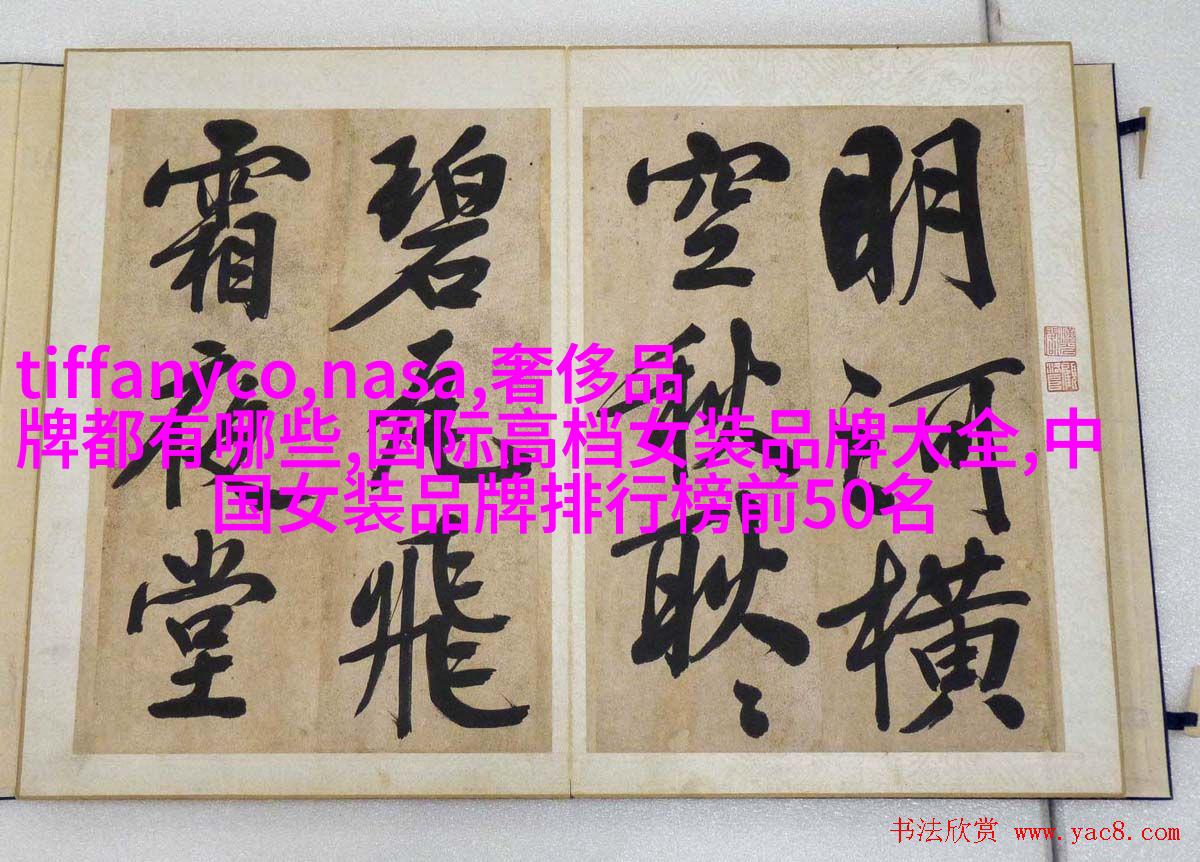 明河横
空秋耿〻
碧瓦飛
霜夜堂
tiffanyco,nasa,奢侈品
牌都有哪些,国际高档女装品牌大全,中
国女装品牌排行榜前50名
书法欣赏 www.yac8.com